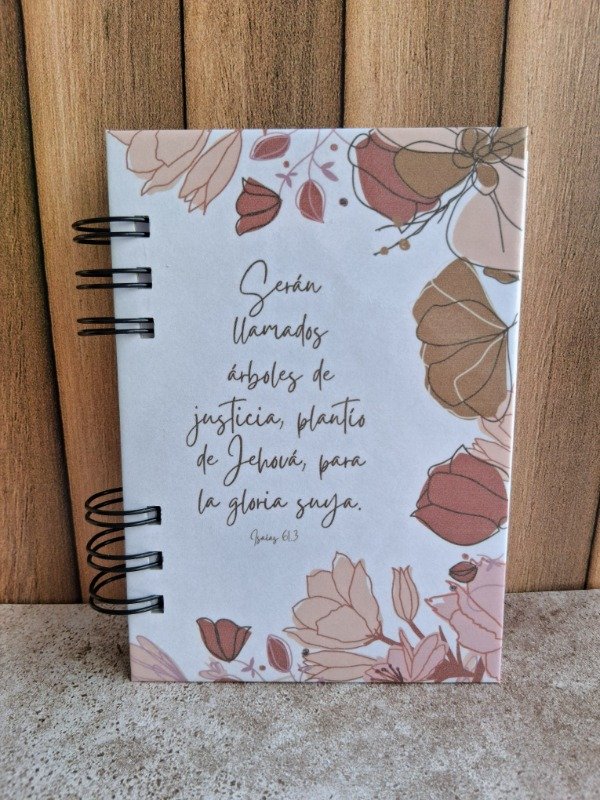 Serán
llamados
árboles de
justicia, plantío
de Jehová, para
la gloria suya.
Isaías 61.3